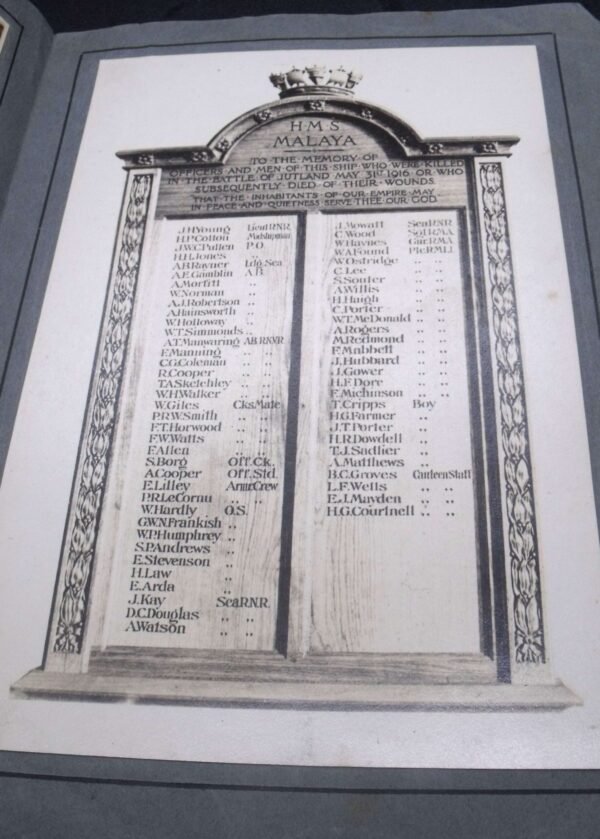 H.M.S
MALAYA
TO THE MEMORY OF
OFFICERS AND MEN OF THIS SHIP WHO WERE KILLED
IN THE BATTLE OF JUTLAND MAY 31st 1916 OR WHO
SUBSEQUENTLY DIED OF THEIR WOUNDS.
THAT THE INHABITANTS OF OUR EMPIRE MAY
IN PEACE AND QUIETNESS SERVE THEE OUR GOD
J.H.Young Lieut RNR
H.P.Cotton Midshipman
J.W.C.Pullen P.O.
H.H.Jones ,,
A.B.Rayner Ldg.Sea
A.E.Gamblin A.B.
A.Morfitt ,,
W.Norman ,,
A.J.Robertson ,,
A.Hainsworth ,,
W.Holloway ,,
W.T.Simmonds ,,
A.T.Manwaring AB.RNVR
F.Manning ,, ,,
C.G.Coleman ,, ,,
R.Cooper ,, ,,
T.A.Sketchley ,, ,,
W.H.Walker ,, ,,
W.Giles Cks Mate
P.R.W.Smith ,, ,,
F.T.Horwood ,, ,,
F.W.Watts ,, ,,
F.Allen ,, ,,
S.Borg Off.Ck.
A.Cooper Off.Std.
E.Lilley Armr Crew
P.R.LeCornu ,, ,,
W.Hardly O.S.
G.W.N.Frankish ,,
W.P.Humphrey ,,
S.P.Andrews ,,
E.Stevenson ,,
H.Law ,,
E.Arda ,,
J.Kay Sea RNR
D.C.Douglas ,, ,,
A.Watson ,, ,,
J.Mowatt Sea RNR
C.Wood Sgt RMA
W.Haynes Gnr. RMA
W.A.Found Pte RMLI
W.Ostridge ,, ,,
C.Lee ,, ,,
S.Souter ,, ,,
A.Willis ,, ,,
H.Haigh ,, ,,
C.Porter ,, ,,
W.T.McDonald ,, ,,
A.Rogers ,, ,,
M.Redmond ,, ,,
F.Mabbett ,, ,,
J.Hubbard ,, ,,
J.Gower ,, ,,
H.F.Dore ,, ,,
F.Michinson ,, ,,
T.Cripps Boy
H.G.Farmer ,,
J.T.Porter ,,
H.R.Dowdell ,,
T.J.Sadlier ,,
A.Matthews ,,
B.C.Groves Canteen Staff
L.F.Wells ,, ,,
E.J.Mayden ,, ,,
H.G.Courtnell ,, ,,